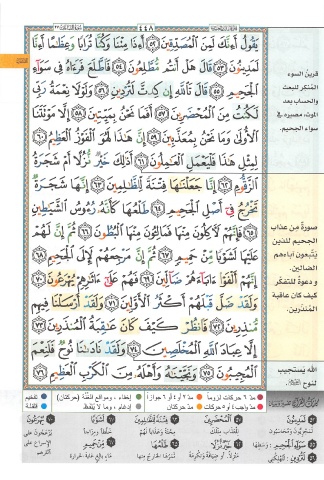 ٤٤٨
يَقُولُ أَءِنَّكَ لَمِنَ ٱلْمُصَدِّقِينَ ٥٢ أَءِذَا مِتْنَا وَكُنَّا تُرَابًا وَعِظَٰمًا أَءِنَّا
لَمَدِينُونَ ٥٣ قَالَ هَلْ أَنتُم مُّطَّلِعُونَ ٥٤ فَٱطَّلَعَ فَرَءَاهُ فِى سَوَآءِ
ٱلْجَحِيمِ ٥٥ قَالَ تَٱللَّهِ إِن كِدتَّ لَتُرْدِينِ ٥٦ وَلَوْلَا نِعْمَةُ رَبِّى
لَكُنتُ مِنَ ٱلْمُحْضَرِينَ ٥٧ أَفَمَا نَحْنُ بِمَيِّتِينَ ٥٨ إِلَّا مَوْتَتَنَا
ٱلْأُولَىٰ وَمَا نَحْنُ بِمُعَذَّبِينَ ٥٩ إِنَّ هَٰذَا لَهُوَ ٱلْفَوْزُ ٱلْعَظِيمُ ٦٠
لِمِثْلِ هَٰذَا فَلْيَعْمَلِ ٱلْعَٰمِلُونَ ٦١ أَذَٰلِكَ خَيْرٌ نُّزُلًا أَمْ شَجَرَةُ
ٱلزَّقُّومِ ٦٢ إِنَّا جَعَلْنَٰهَا فِتْنَةً لِّلظَّٰلِمِينَ ٦٣ إِنَّهَا شَجَرَةٌ
تَخْرُجُ فِىٓ أَصْلِ ٱلْجَحِيمِ ٦٤ طَلْعُهَا كَأَنَّهُۥ رُءُوسُ ٱلشَّيَٰطِينِ
٦٥ فَإِنَّهُمْ لَءَاكِلُونَ مِنْهَا فَمَالِـُٔونَ مِنْهَا ٱلْبُطُونَ ٦٦ ثُمَّ إِنَّ لَهُمْ
عَلَيْهَا لَشَوْبًا مِّنْ حَمِيمٍ ٦٧ ثُمَّ إِنَّ مَرْجِعَهُمْ لَإِلَى ٱلْجَحِيمِ ٦٨
إِنَّهُمْ أَلْفَوْا۟ ءَابَآءَهُمْ ضَآلِّينَ ٦٩ فَهُمْ عَلَىٰٓ ءَاثَٰرِهِمْ يُهْرَعُونَ ٧٠
وَلَقَدْ ضَلَّ قَبْلَهُمْ أَكْثَرُ ٱلْأَوَّلِينَ ٧١ وَلَقَدْ أَرْسَلْنَا فِيهِم
مُّنذِرِينَ ٧٢ فَٱنظُرْ كَيْفَ كَانَ عَٰقِبَةُ ٱلْمُنذَرِينَ ٧٣
إِلَّا عِبَادَ ٱللَّهِ ٱلْمُخْلَصِينَ ٧٤ وَلَقَدْ نَادَىٰنَا نُوحٌ فَلَنِعْمَ
ٱلْمُجِيبُونَ ٧٥ وَنَجَّيْنَٰهُ وَأَهْلَهُۥ مِنَ ٱلْكَرْبِ ٱلْعَظِيمِ ٧٦
قرينُ السوء
المُنكر للبعث
والحساب بعد
الموت، مصيره في
سواء الجحيم.
صورة من عذاب
الجحيم للذين
يتّبعون آباءهم
الضالين.
و دعوة للتفكّر
كيف كان عاقبة
المُنذَرين.
الله يستجيب
لنوح
مدّ ٦ حركات لزوماً
مدّ ٢ أو ٤ أو ٦ جوازاً
إخفاء، ومواقع الغنّة (حركتان)
تفخيم
مدّ واجب ٤ أو ٥ حركات
مدّ حركتان
إدغام، وما لا يُلفظ
قلقلة